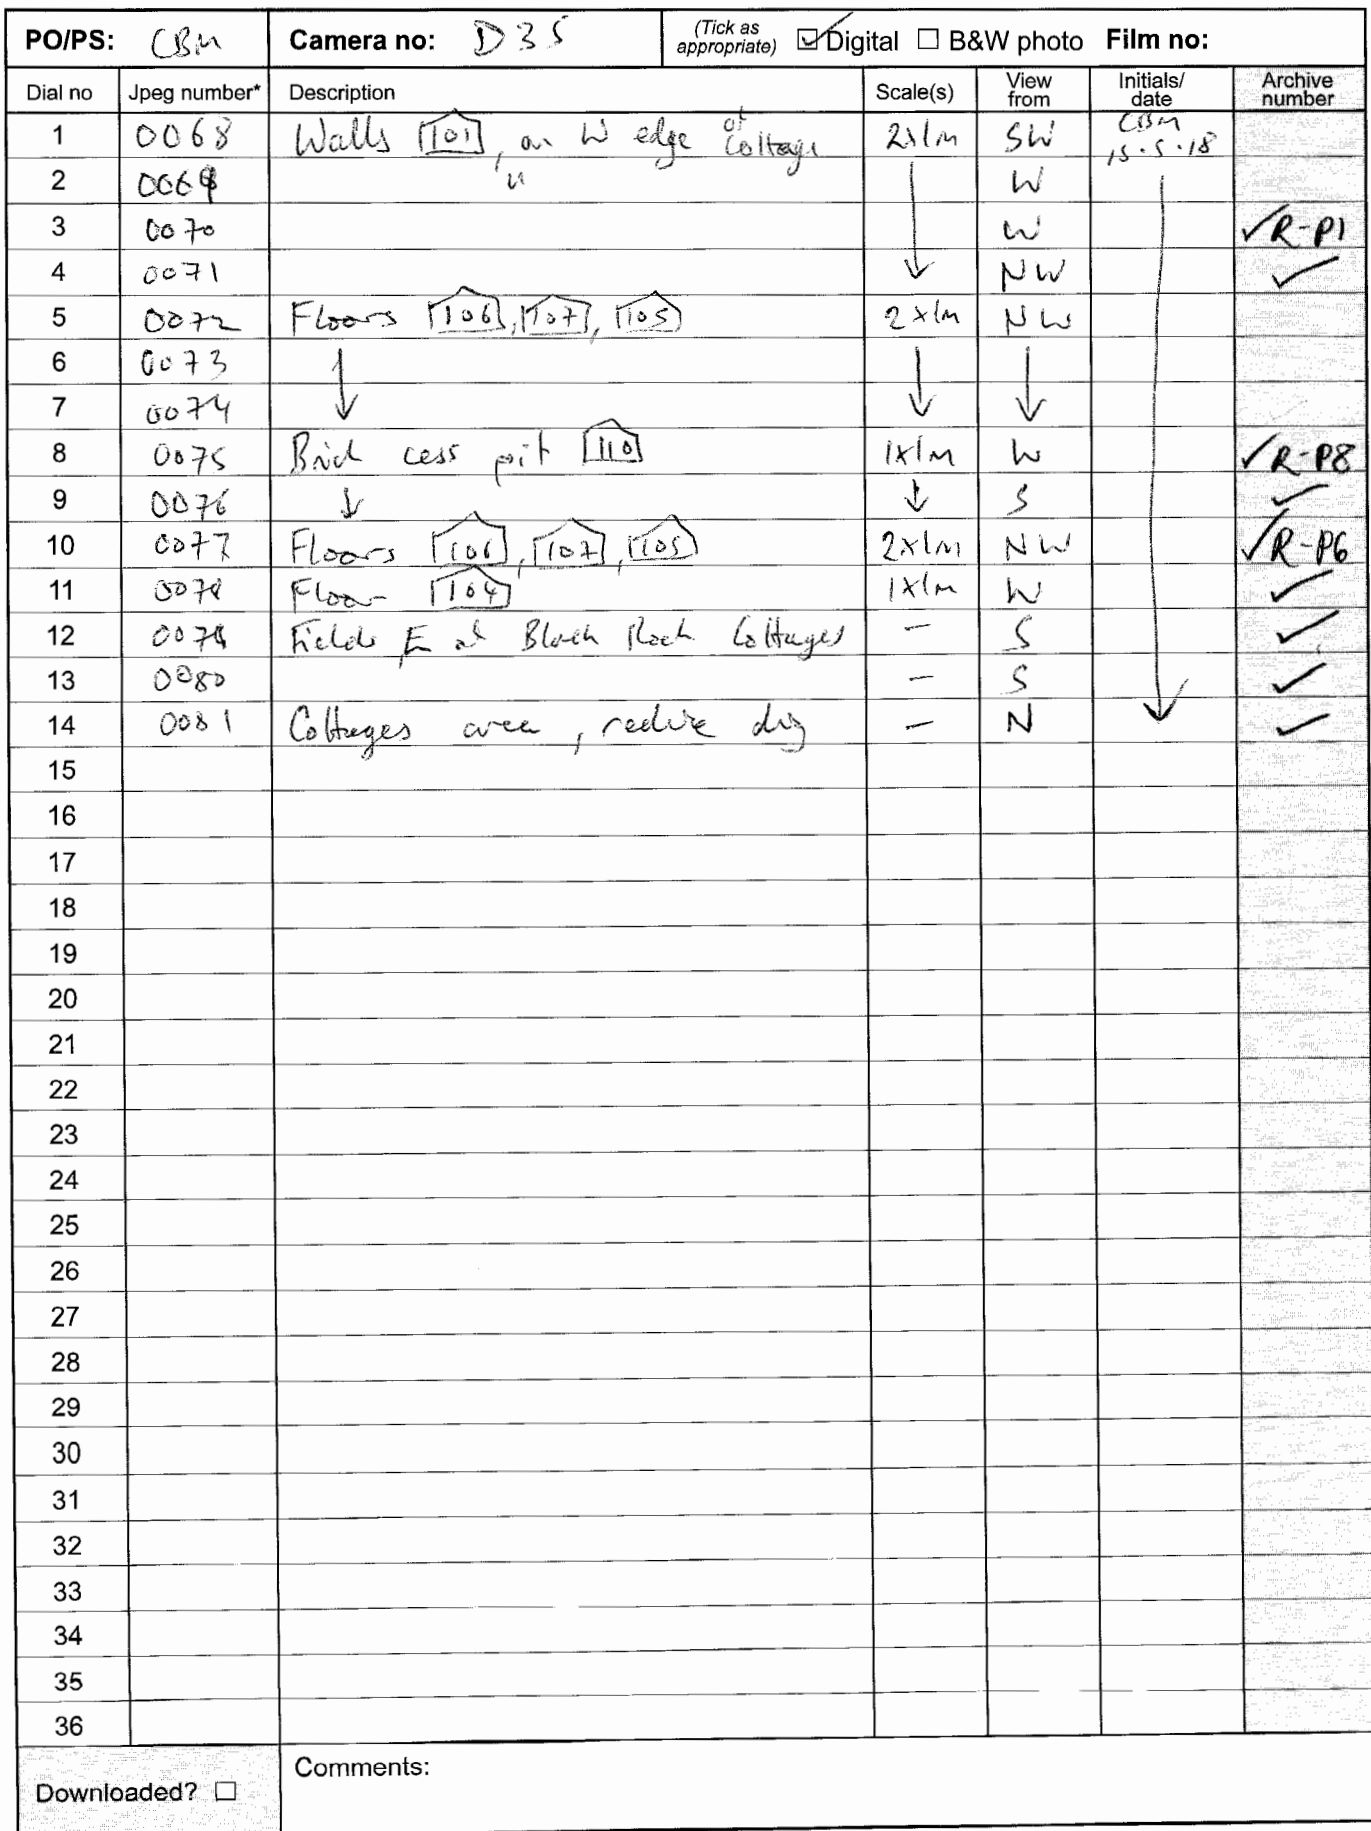 PO/PS: CBM Camera no: D35 (Tick as appropriate) ☑ Digital ☐ B&W photo Film no:
Dial no Jpeg number* Description Scale(s) View from Initials/date Archive number
1 0068 Walls [101], on W edge of Cottage 2x1m SW CBM 15.5.18
2 0069 " W
3 0070 W ✓R-P1
4 0071 NW ✓
5 0072 Floors [106], [107], [105] 2x1m NW
6 0073
7 0074
8 0075 Brick cess pit [110] 1x1m W ✓R-P8
9 0076 ↓ ↓ S ✓
10 0077 Floors [106], [107], [105] 2x1m NW ✓R-P6
11 0078 Floor [104] 1x1m W ✓
12 0079 Fields E of Black Rock Cottages – S ✓
13 0080 – S ✓
14 0081 Cottages area, reduce dig – N ✓
15
16
17
18
19
20
21
22
23
24
25
26
27
28
29
30
31
32
33
34
35
36
Downloaded? ☐ Comments: